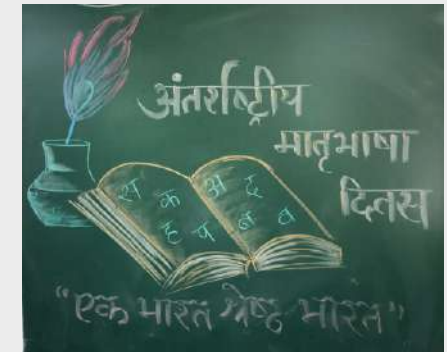 अंतर्राष्ट्रीय
मातृभाषा
दिवस
स क अ द
ह प ब व
"एक भारत श्रेष्ठ भारत"